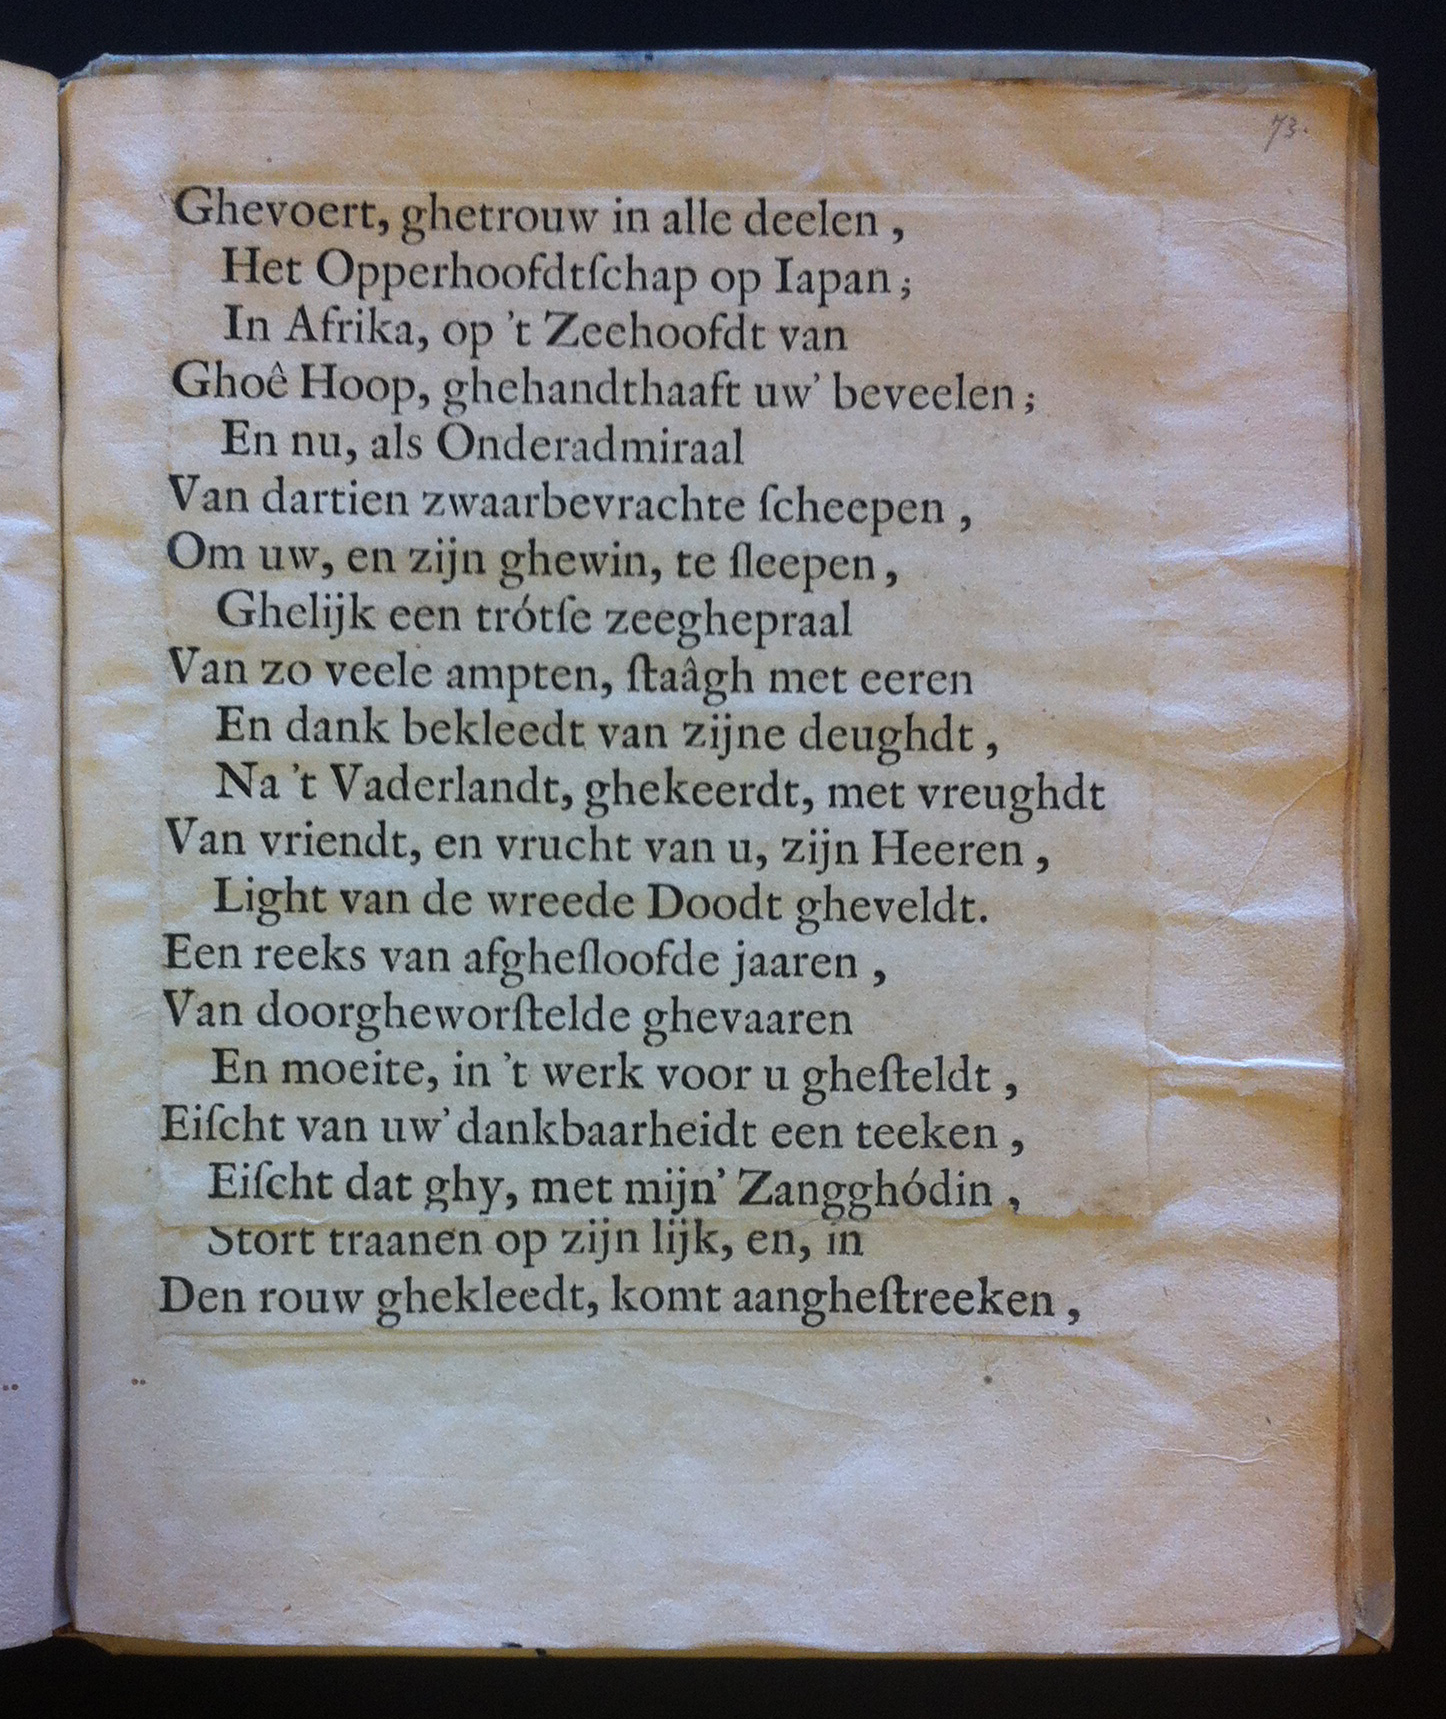 73.
Ghevoert, ghetrouw in alle deelen,
Het Opperhoofdtſchap op Iapan;
In Afrika, op 't Zeehoofdt van
Ghoê Hoop, ghehandthaaft uw' beveelen;
En nu, als Onderadmiraal
Van dartien zwaarbevrachte ſcheepen,
Om uw, en zijn ghewin, te ſleepen,
Ghelijk een trótſe zeeghepraal
Van zo veele ampten, ſtaâgh met eeren
En dank bekleedt van zijne deughdt,
Na 't Vaderlandt, ghekeerdt, met vreughdt
Van vriendt, en vrucht van u, zijn Heeren,
Light van de wreede Doodt gheveldt.
Een reeks van afgheſloofde jaaren,
Van doorgheworſtelde ghevaaren
En moeite, in 't werk voor u gheſteldt,
Eiſcht van uw' dankbaarheidt een teeken,
Eiſcht dat ghy, met mijn' Zangghódin,
Stort traanen op zijn lijk, en, in
Den rouw ghekleedt, komt aangheſtreeken,